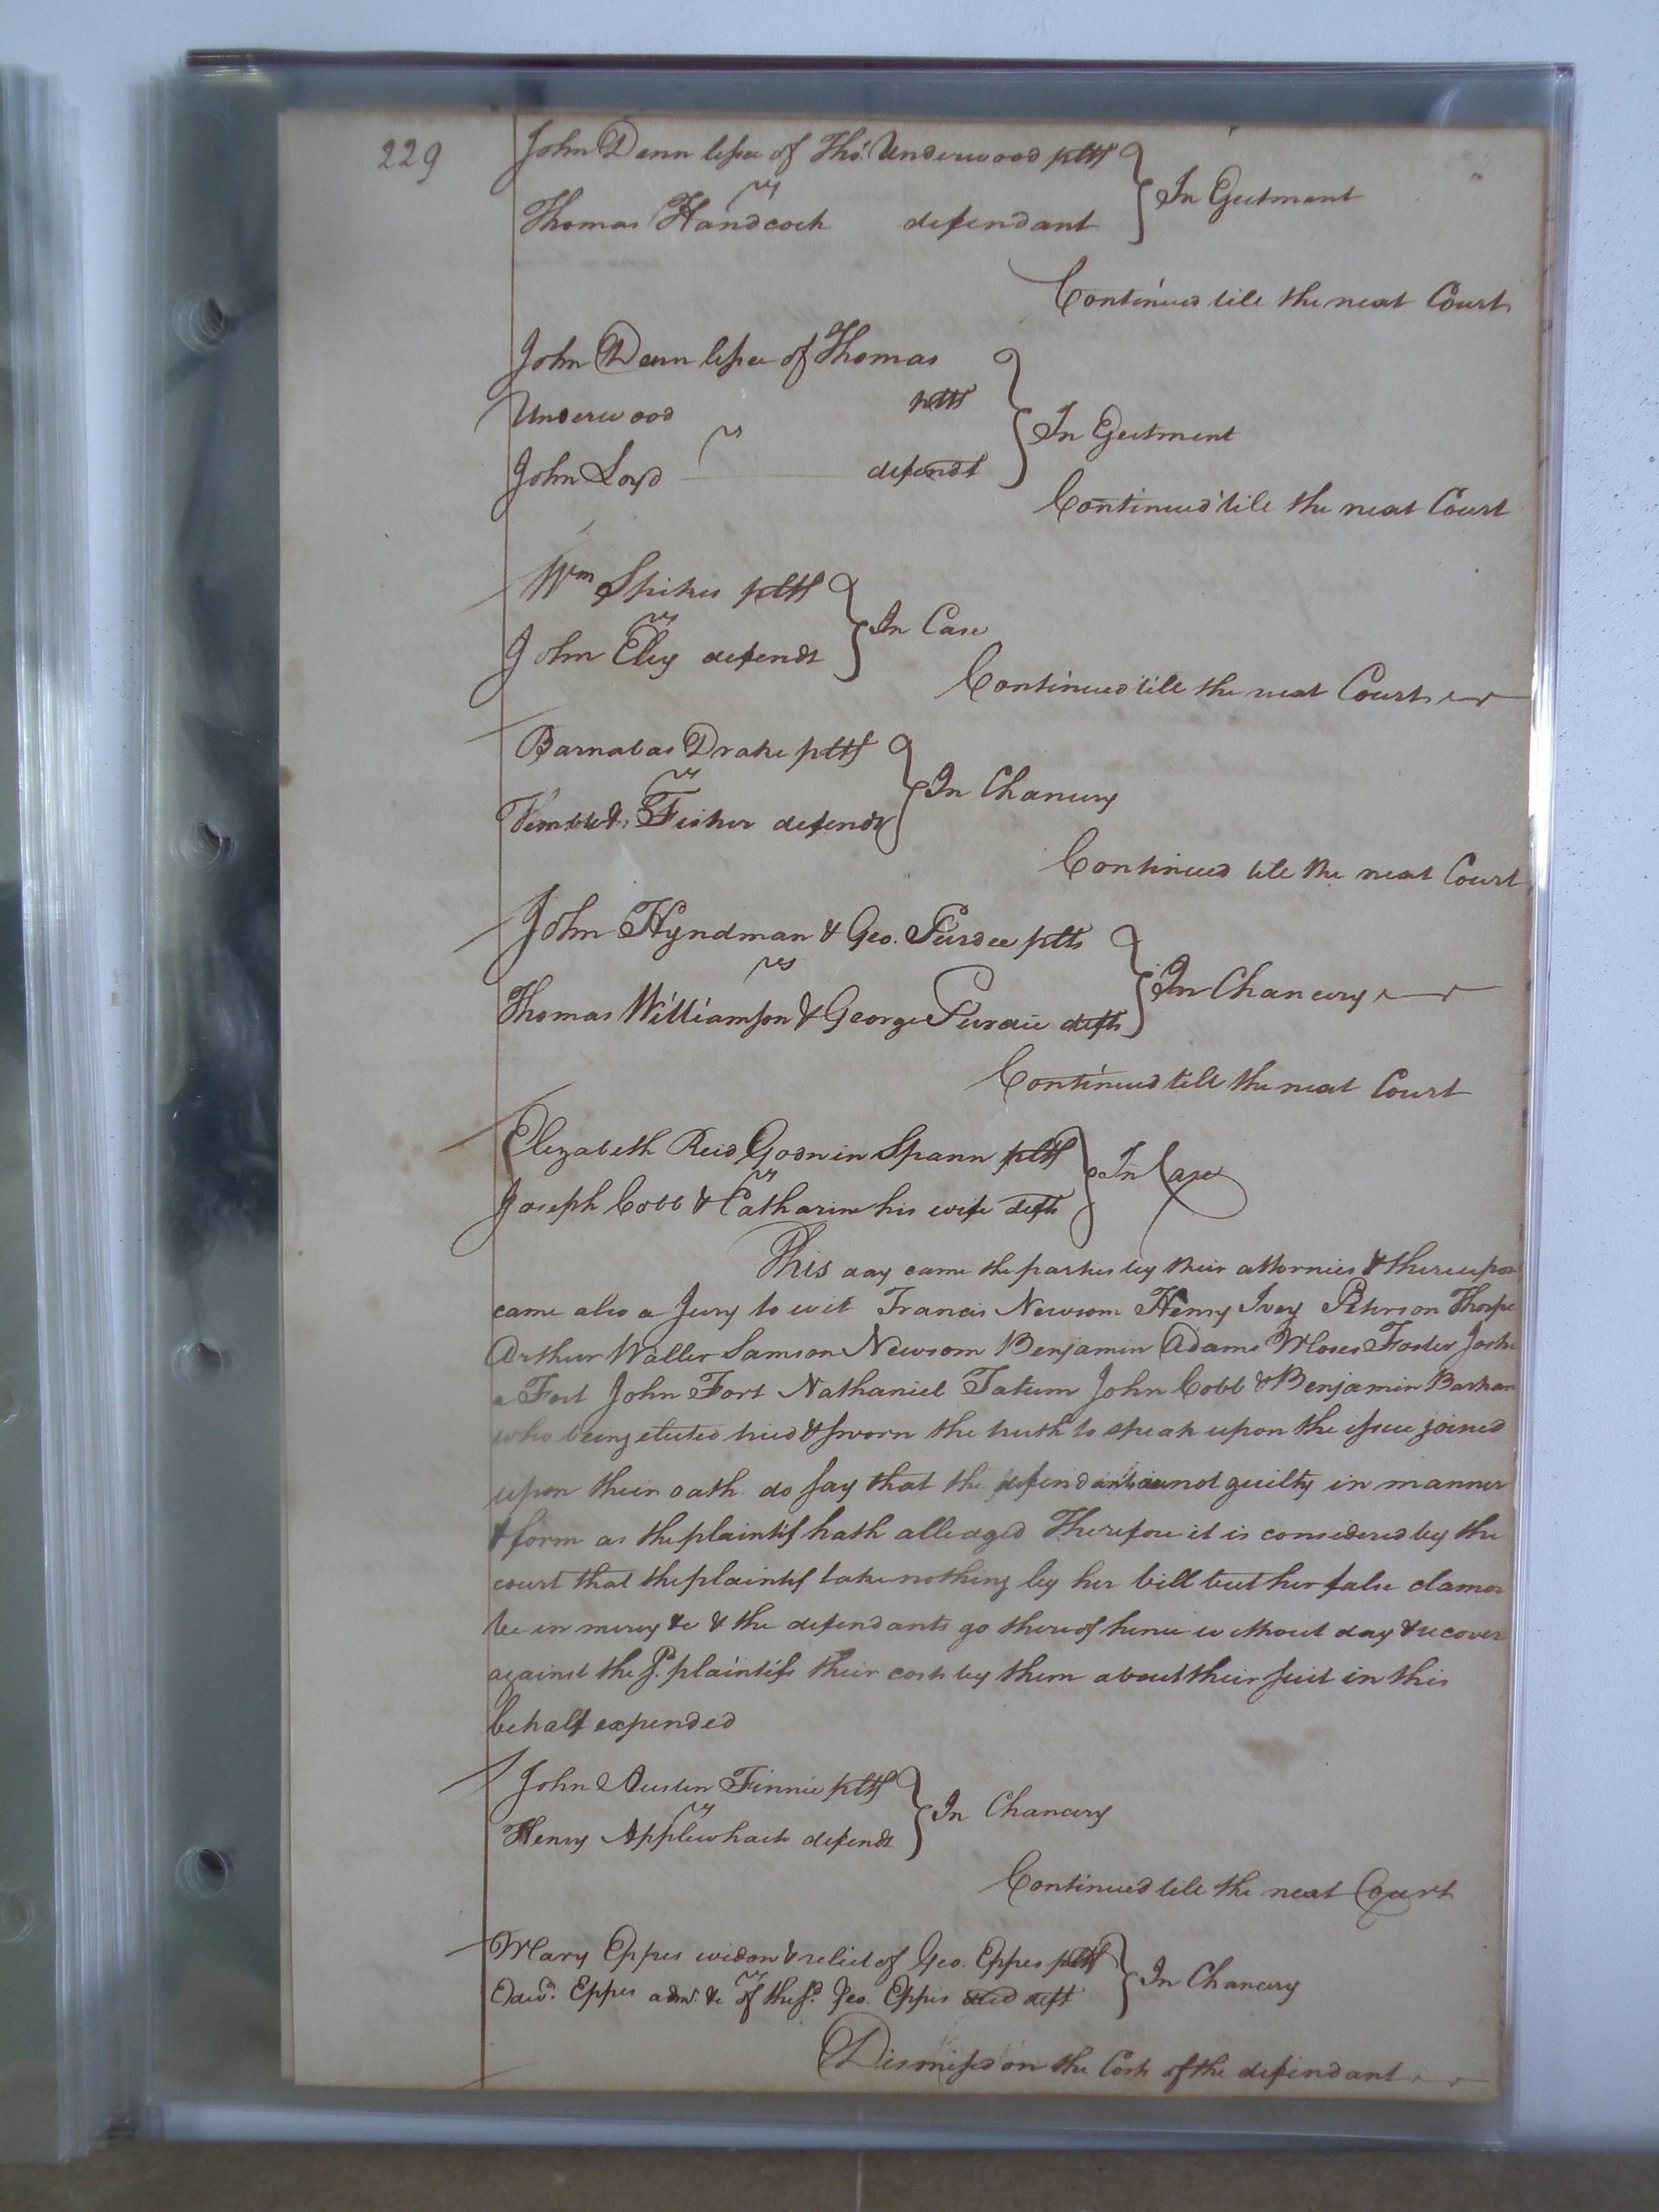 229
John Denn lessee of Tho.s Underwood pltf
vs
In Ejectment
Thomas Handcock defendant
Continued till the next Court
John Denn lessee of Thomas
Underwood pltf
vs
In Ejectment
John Loyd defendt
Continued till the next Court
Wm Spikes pltf
vs
In Case
John Eley defendt
Continued till the next Court
Barnabas Drake pltf
vs
In Chancery
Fisher defendt
Continued till the next Court
John Hyndman & Geo. Purdee plts
vs
In Chancery
Thomas Williamson & George Purdie defts
Continued till the next Court
Elizabeth Reid Godwin Spann pltf
vs
In Case
Joseph Cobb & Catharine his wife defts
This day came the parties by their attornies & thereupon
came also a Jury to wit Francis Newsom Henry Ivey Peterson Thorpe
Arthur Waller Samson Newsom Benjamin Adams Moses Foster Joshu
a Fort John Fort Nathaniel Tatum John Cobb & Benjamin Barham
who being elected tried & sworn the truth to speak upon the issue joined
upon their oath do say that the defendants are not guilty in manner
& form as the plaintif hath alledged Therefore it is considered by the
court that the plaintif take nothing by her bill but her false clamor
be in mercy &c & the defendants go thereof hence without day & recover
against the sd. plaintifs their costs by them about their suit in this
behalf expended
John Austin Finnie pltf
vs
In Chancery
Henry Applewhaite defendt
Continued till the next Court
Mary Eppes widow & relict of Geo. Eppes pltf
vs
In Chancery
Edwd. Eppes admr. &c of the sd. Geo. Eppes decd deft
Dismissed on the Costs of the defendant